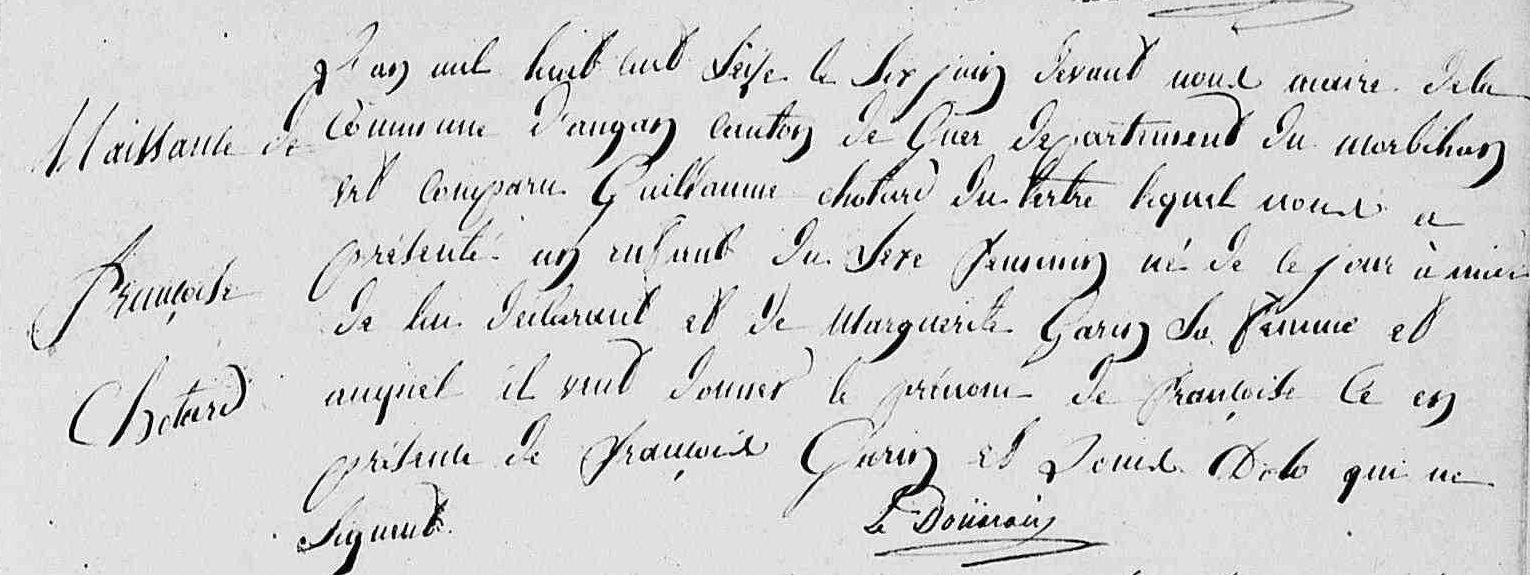 L'an mil huit cent Seize le Six juin devant nous maire de la
Naissance de
commune d'augan canton de Guer departement du morbihan
est comparu Guillaume chotard du tertre lequel nous a
présenté un enfant du Sexe feminin né de ce jour à midi
Françoise
de lui declarant et de Marguerite Garin Sa femme et
Chotard
auquel il veut donner le prénom de Françoise Ce en
présence de François Garin et Louis Dolo qui ne
Signent.
Le Doüarain